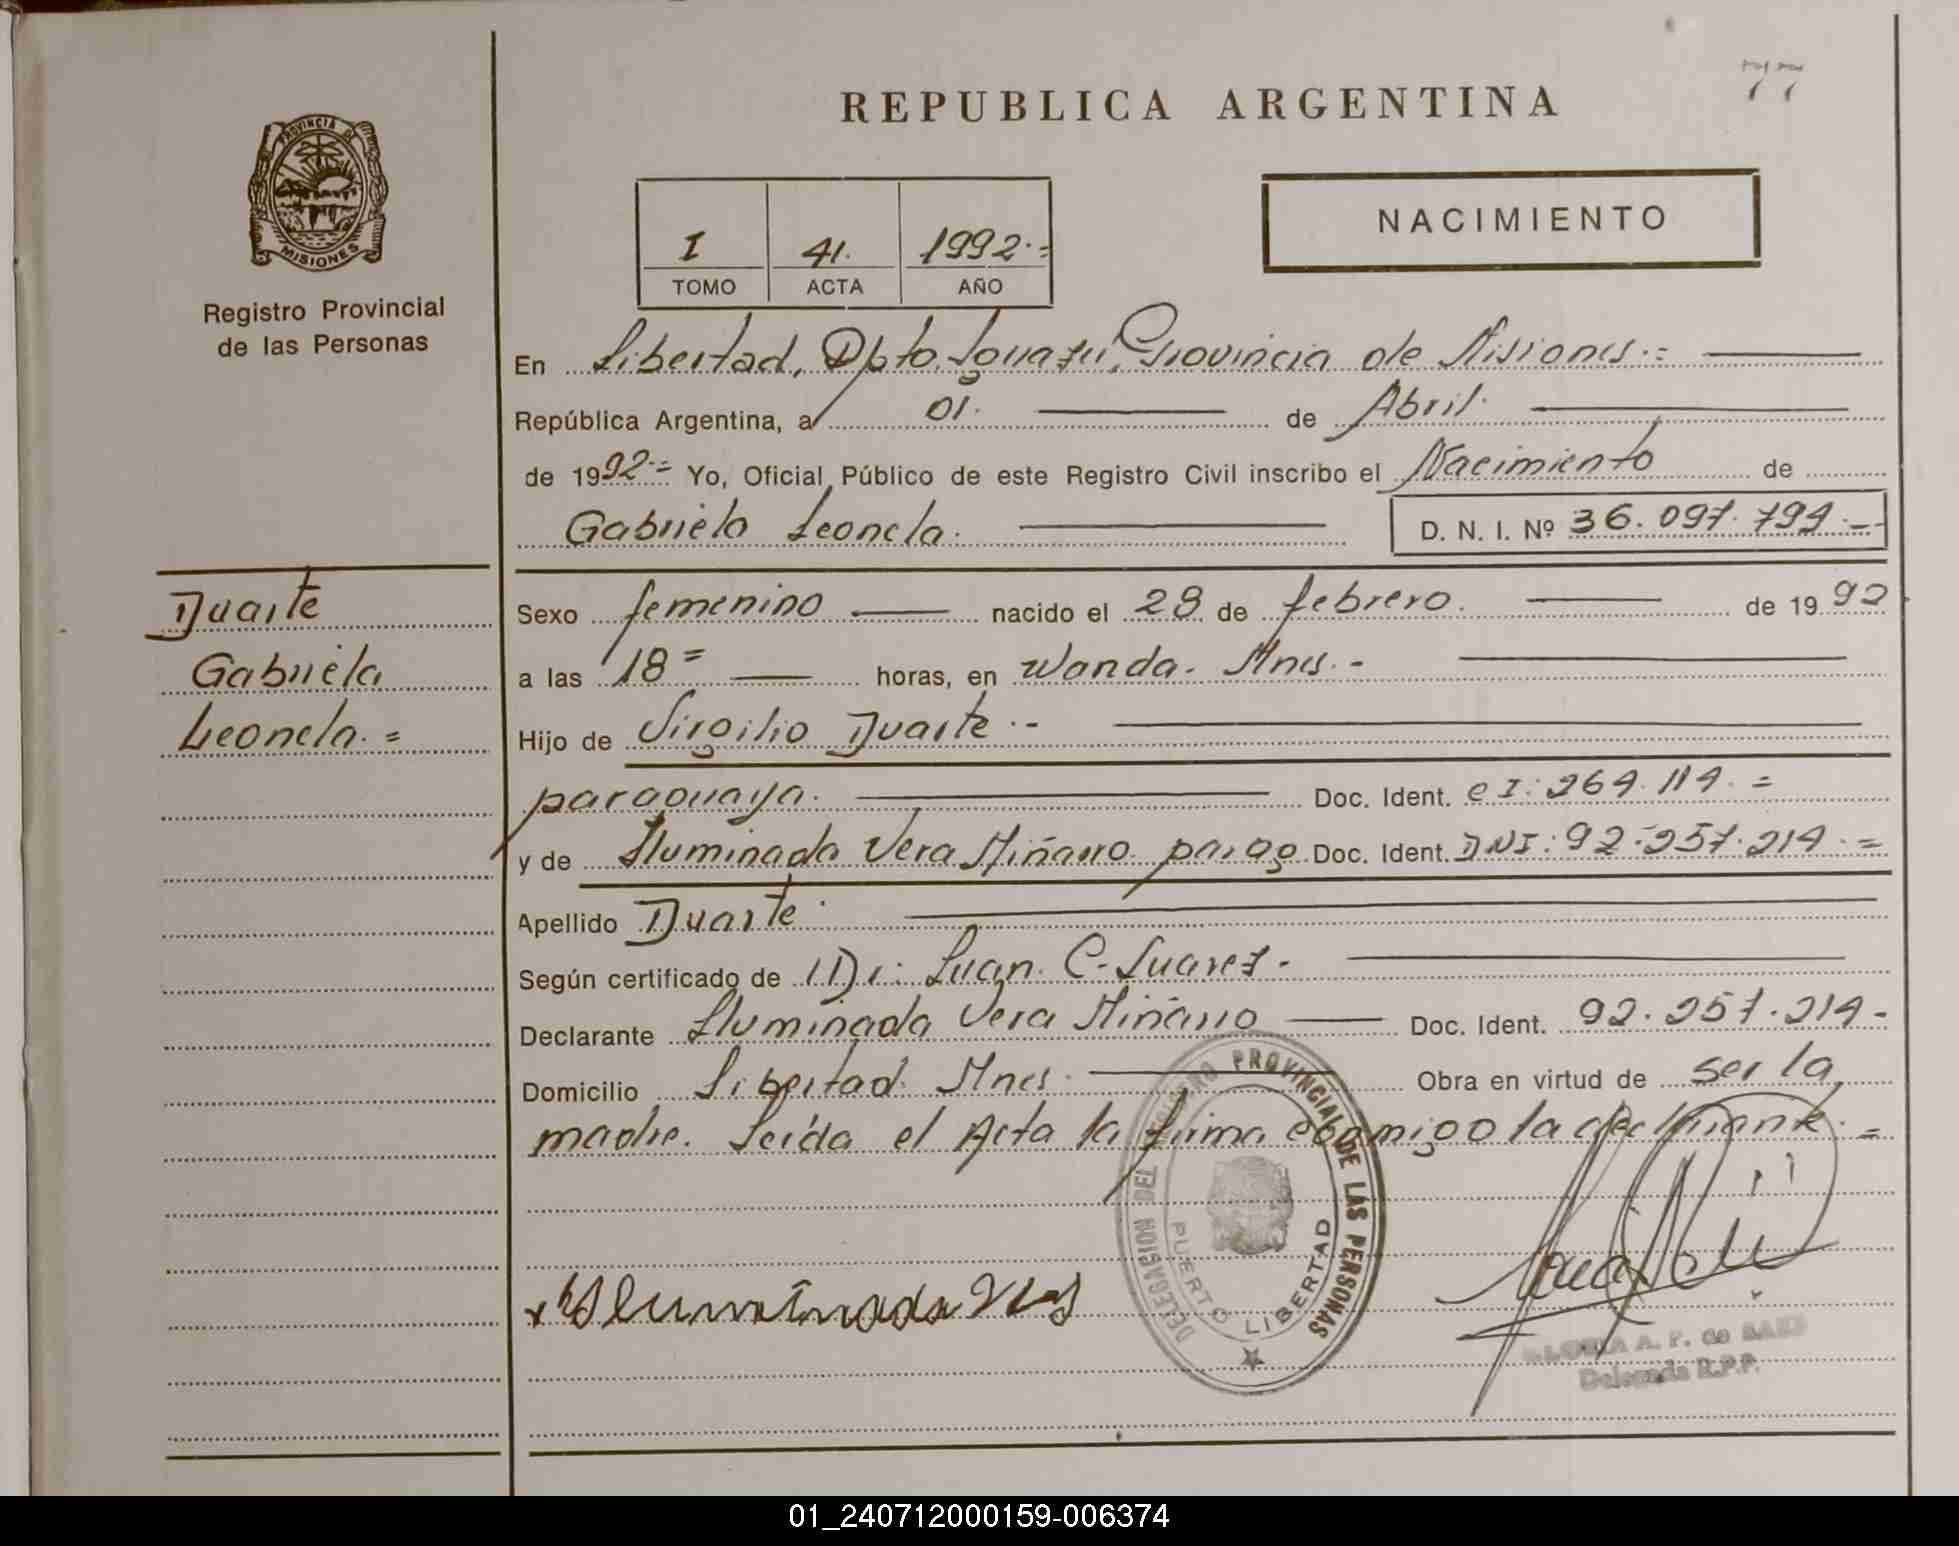 77
REPUBLICA ARGENTINA
PROVINCIA DE MISIONES
I 41. 1992.=
TOMO ACTA AÑO
NACIMIENTO
Registro Provincial
de las Personas
En Libertad, Dpto. Iguazu, Provincia de Misiones.=
República Argentina, a 01. de Abril.
de 1992.= Yo, Oficial Público de este Registro Civil inscribo el Nacimiento de
Gabriela Leonela. D. N. I. Nº 36.097.794.=
Duarte
Gabriela
Leonela.=
Sexo femenino nacido el 28 de febrero. de 1992
a las 18= horas, en Wanda. Mnes.-
Hijo de Virgilio Duarte.-
paraguaya. Doc. Ident. CI: 264.114.=
y de Iluminada Vera Miñarro parag Doc. Ident. DNI: 92.257.214.=
Apellido Duarte.
Según certificado de Dr. Juan C. Suarez.-
Declarante Iluminada Vera Miñarro Doc. Ident. 92.257.214-
Domicilio Libertad Mnes. Obra en virtud de ser la
madre. Leída el Acta la firma conmigo la declarante.=
DELEGACION DEL REGISTRO PROVINCIAL DE LAS PERSONAS
PUERTO LIBERTAD
x Iluminada
A. P. de
Delegada R.P.P.
01_240712000159-006374